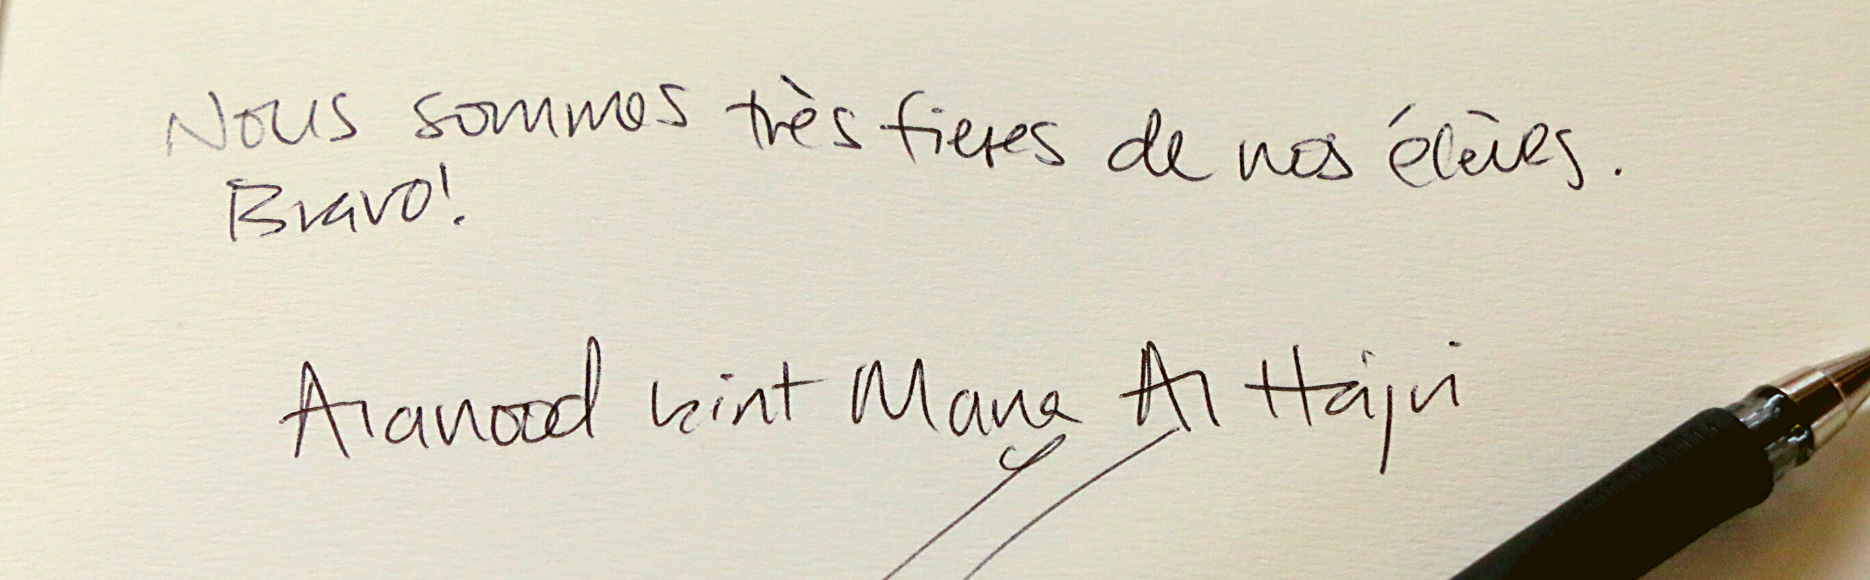 Nous sommes très fieres de nos élèves.
Bravo!
Alanood bint Mana Al Hajri